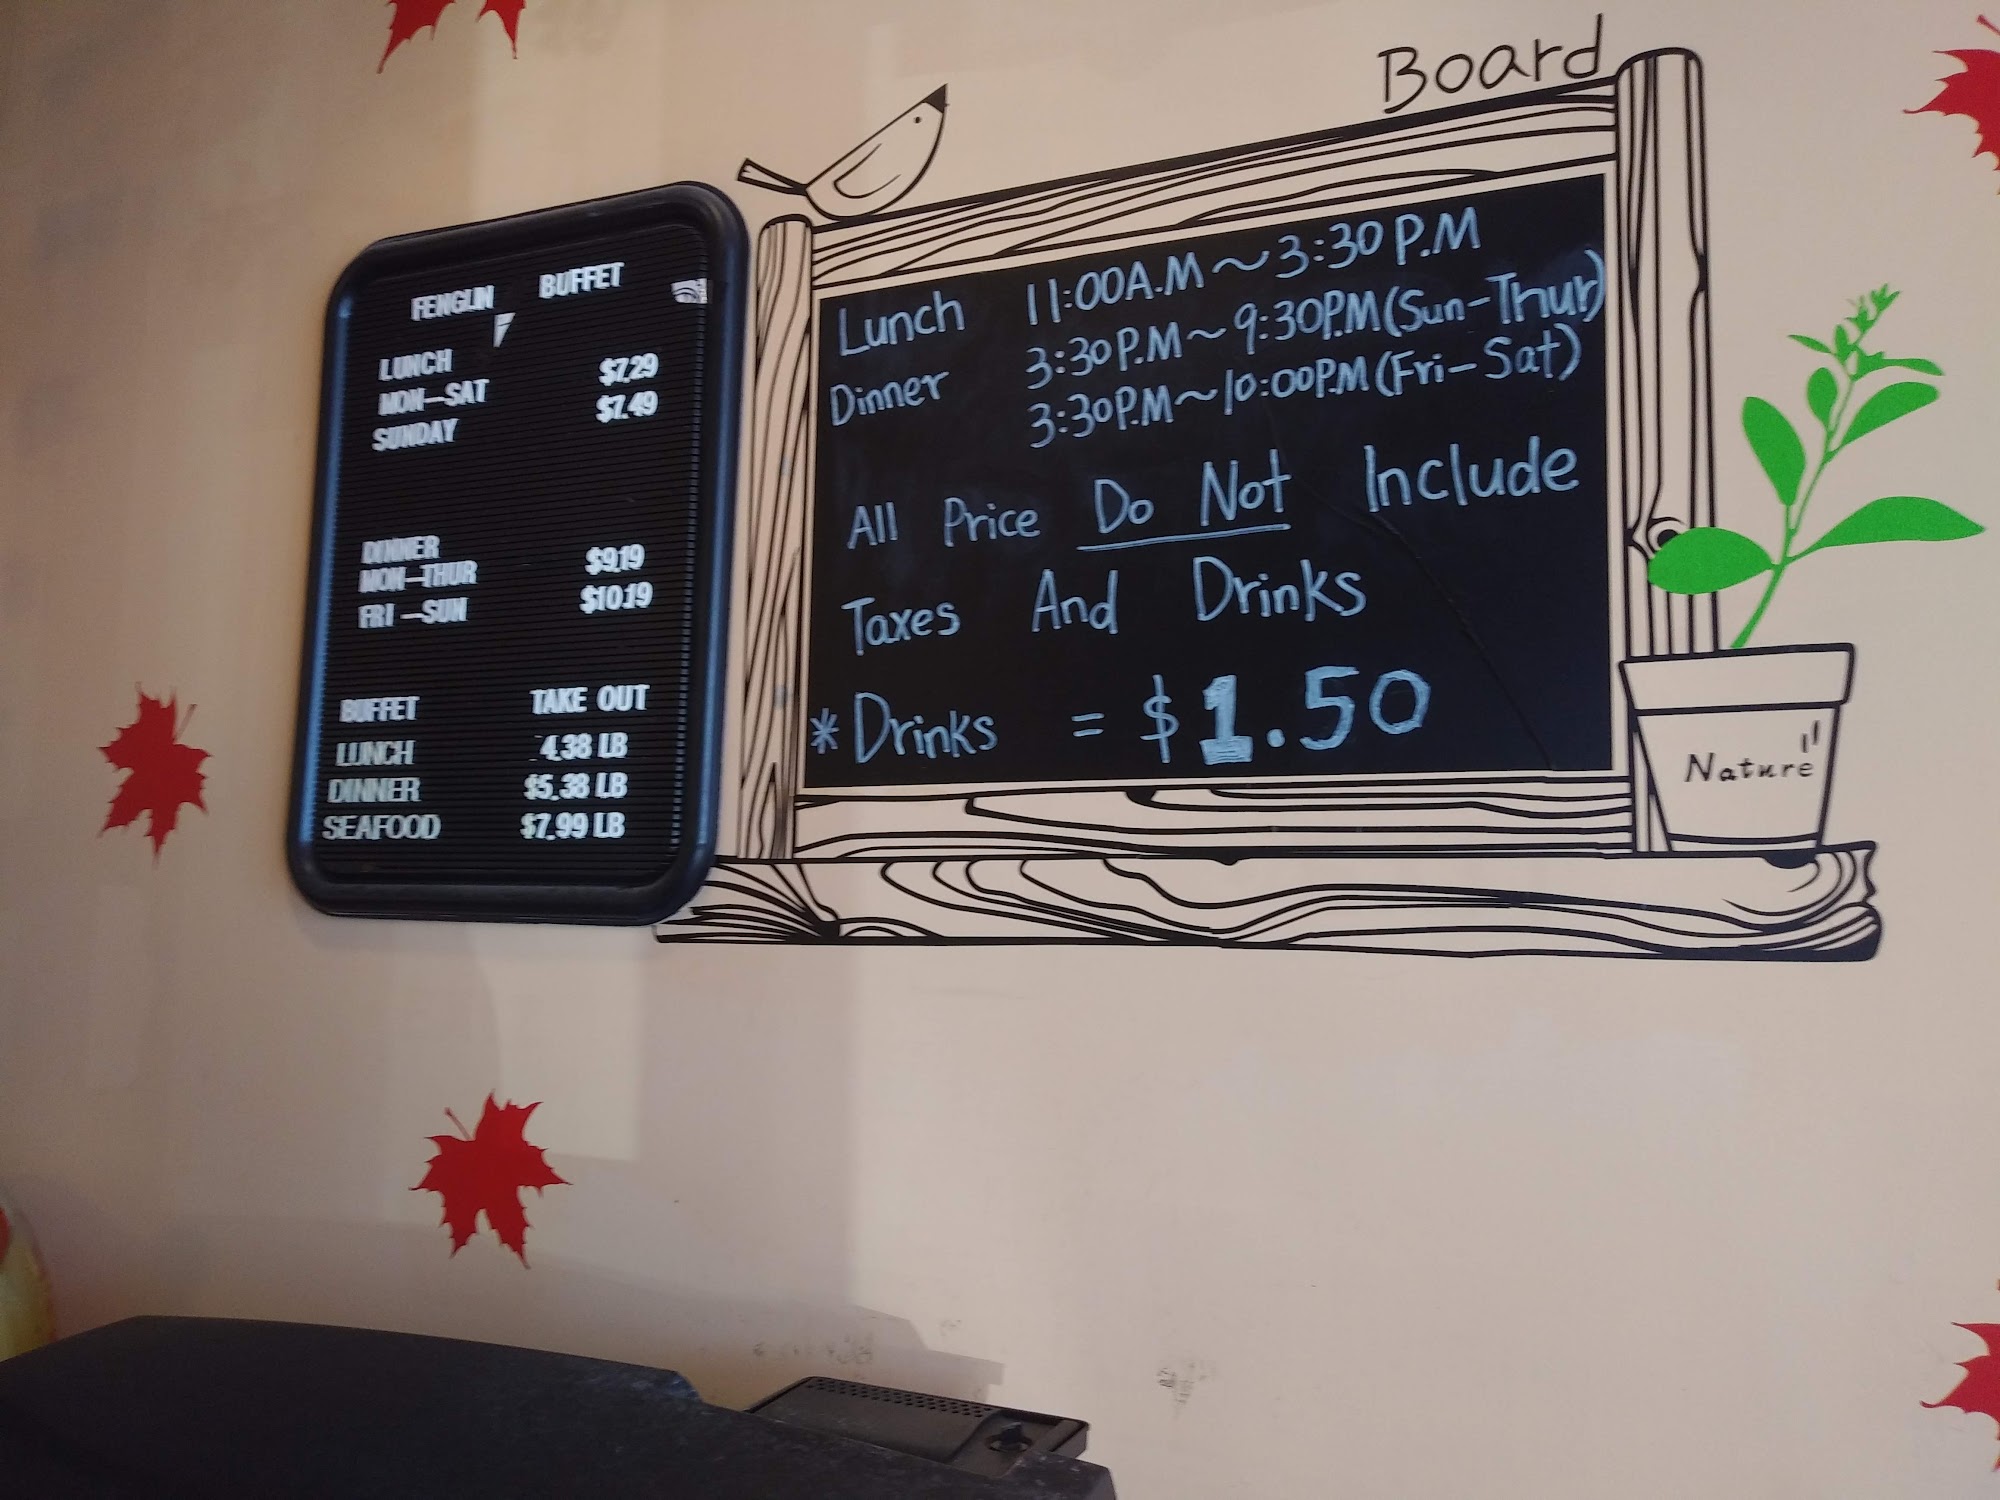 FENGLIN BUFFET
LUNCH
MON—SAT $7.29
SUNDAY $7.49
DINNER
MON—THUR $9.19
FRI—SUN $10.19
BUFFET TAKE OUT
LUNCH 4.38 LB
DINNER $5.38 LB
SEAFOOD $7.99 LB
Board
Lunch 11:00A.M~3:30P.M
Dinner 3:30P.M~9:30P.M(Sun-Thur)
3:30P.M~10:00P.M(Fri-Sat)
All Price Do Not Include
Taxes And Drinks
*Drinks = $1.50
Nature